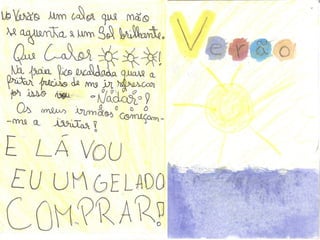 No Verão um calor que não
se aguenta e um Sol brilhante.
Que Calor !
Na praia fico escaldada quase a
fritar preciso de me ir refrescar
por isso vou
-Nadar!
Os meus irmãos começam-
-me a irritar!
E LÁ VOU
EU UM GELADO
COMPRAR!
Verão